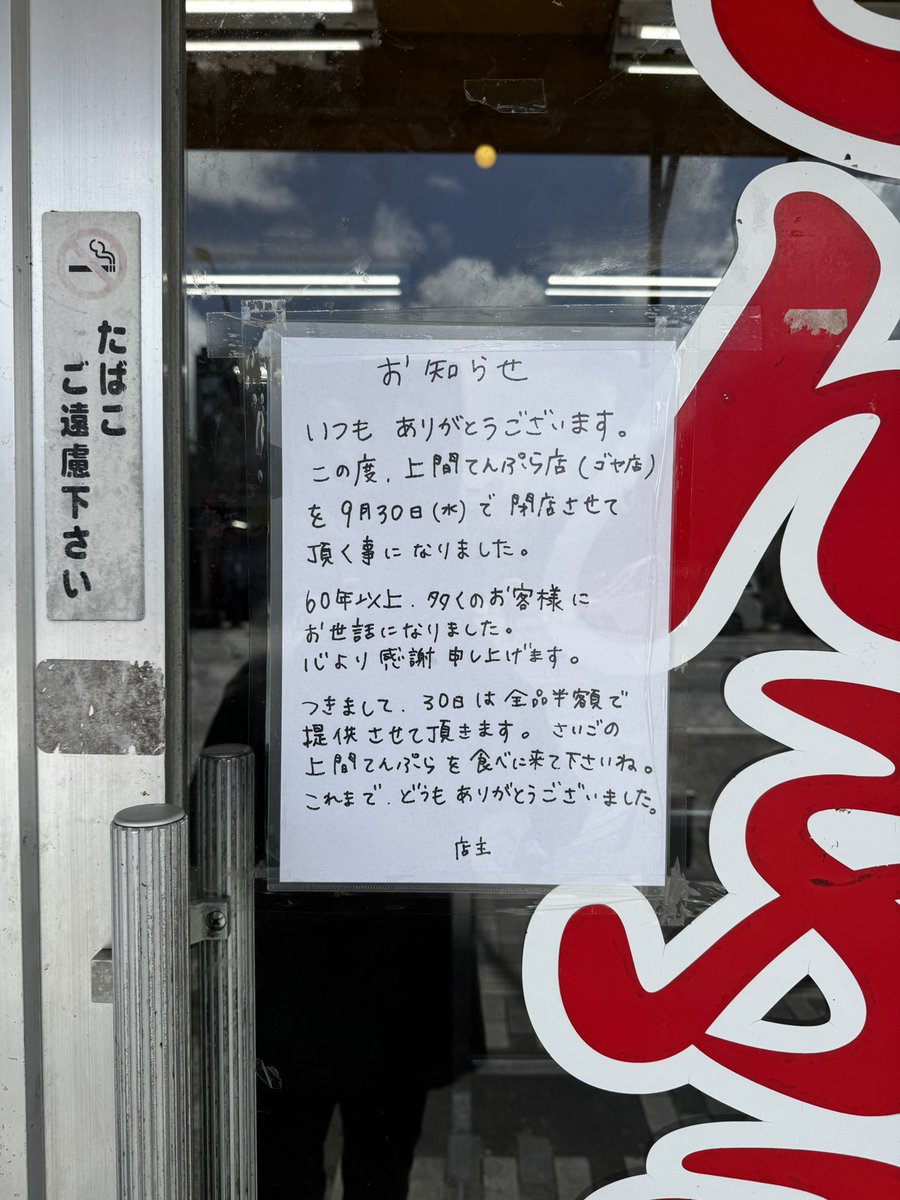 たばこ
ご遠慮下さい
お知らせ
いつも ありがとうございます。
この度、上間てんぷら店(ゴヤ店)
を9月30日(水)で閉店させて
頂く事になりました。
60年以上、多くのお客様に
お世話になりました。
心より感謝申し上げます。
つきまして、30日は全品半額で
提供させて頂きます。さいごの
上間てんぷらを食べに来て下さいね。
これまで、どうもありがとうございました。
店主